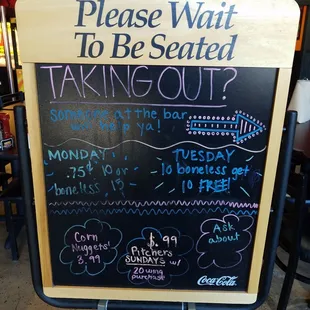 Please Wait
To Be Seated
TAKING OUT?
someone at the bar
will help ya!
MONDAY
.75¢ 10 or
boneless 13
TUESDAY
10 boneless get
10 FREE!
Corn
Nuggets!
3.99
$.99
Pitchers
SUNDAYS w/
20 wing
purchase
Ask
about
Coca-Cola